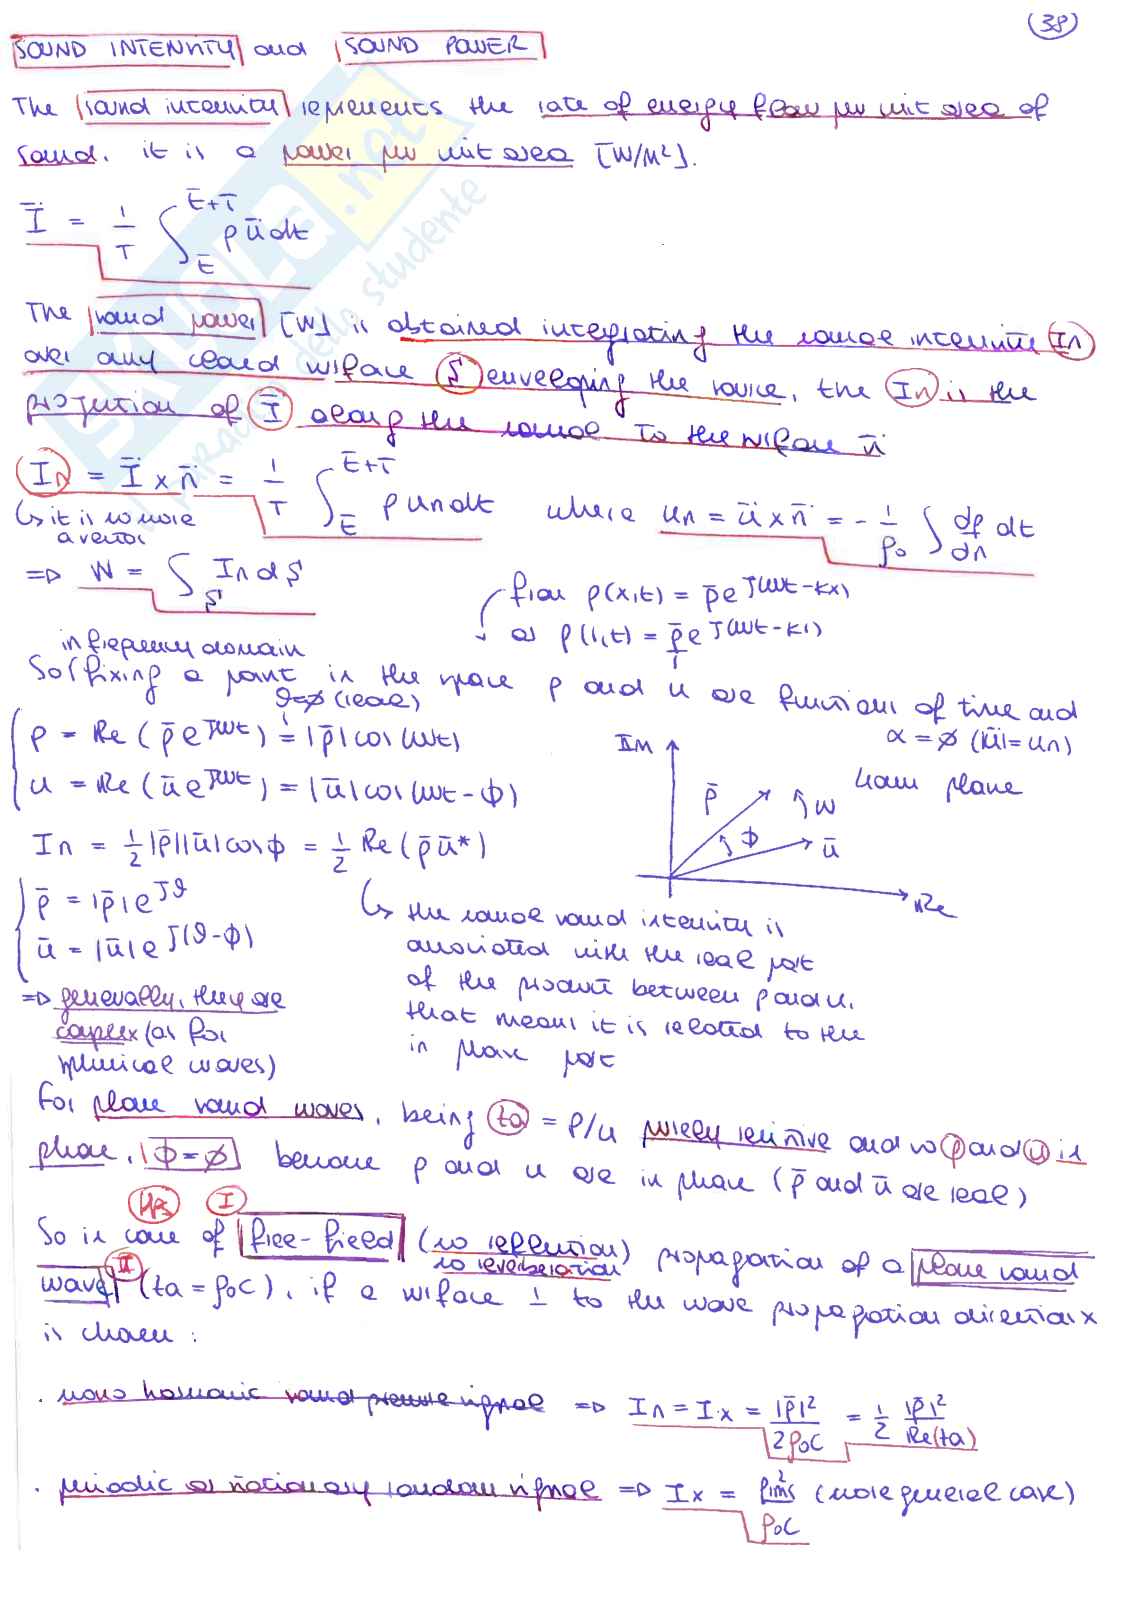 38
SOUND INTENSITY and SOUND POWER
The sound intensity represents the rate of energy flow per unit area of
sound. it is a power per unit area [W/m²].
Ī = 1/T ∫_t̄^{t̄+T} p ū dt
The sound power [W] is obtained integrating the sound intensity In
over any closed surface S enveloping the source, the In is the
projection of Ī along the normal to the surface n̄
In = Ī × n̄ = 1/T ∫_t̄^{t̄+T} p un dt where un = ū × n̄ = - 1/ρ₀ ∫ dp/dn dt
↳ it is no more
a vector
=> W = ∫_S In dS
from p(x,t) = p̄ e^{j(ωt-kx)}
as p(r,t) = p̄/r e^{j(ωt-kr)}
in frequency domain
So (fixing a point in the space p and u are functions of time and
ϑ=∅ (real)
α = ∅ (|ū| = un)
p = Re(p̄ e^{jωt}) = |p̄| cos(ωt)
u = Re(ū e^{jωt}) = |ū| cos(ωt-ϕ)
Im
p̄
ω
ϕ
ū
Re
Gauss plane
In = 1/2 |p̄||ū| cosϕ = 1/2 Re(p̄ ū*)
p̄ = |p̄| e^{jϑ}
ū = |ū| e^{j(ϑ-ϕ)}
=> generally, they are
complex (as for
spherical waves)
↳ the normal sound intensity is
associated with the real part
of the product between p and u.
that means it is related to the
in phase part
For plane sound waves, being ta = p/u purely resistive and so p and u in
phase, ϕ=∅ because p and u are in phase (p̄ and ū are real)
Hps I
So in case of free-field (no reflection) propagation of a plane sound
no reverberation
II
wave (ta = ρ₀c), if a surface ⊥ to the wave propagation direction x
is chosen:
. mono harmonic sound pressure signal => In = Ix = |p̄|²/2ρ₀c = 1/2 |p̄|²/Re(ta)
. periodic or stationary random signal => Ix = p²rms/ρ₀c (more general case)
SKUOLA.net